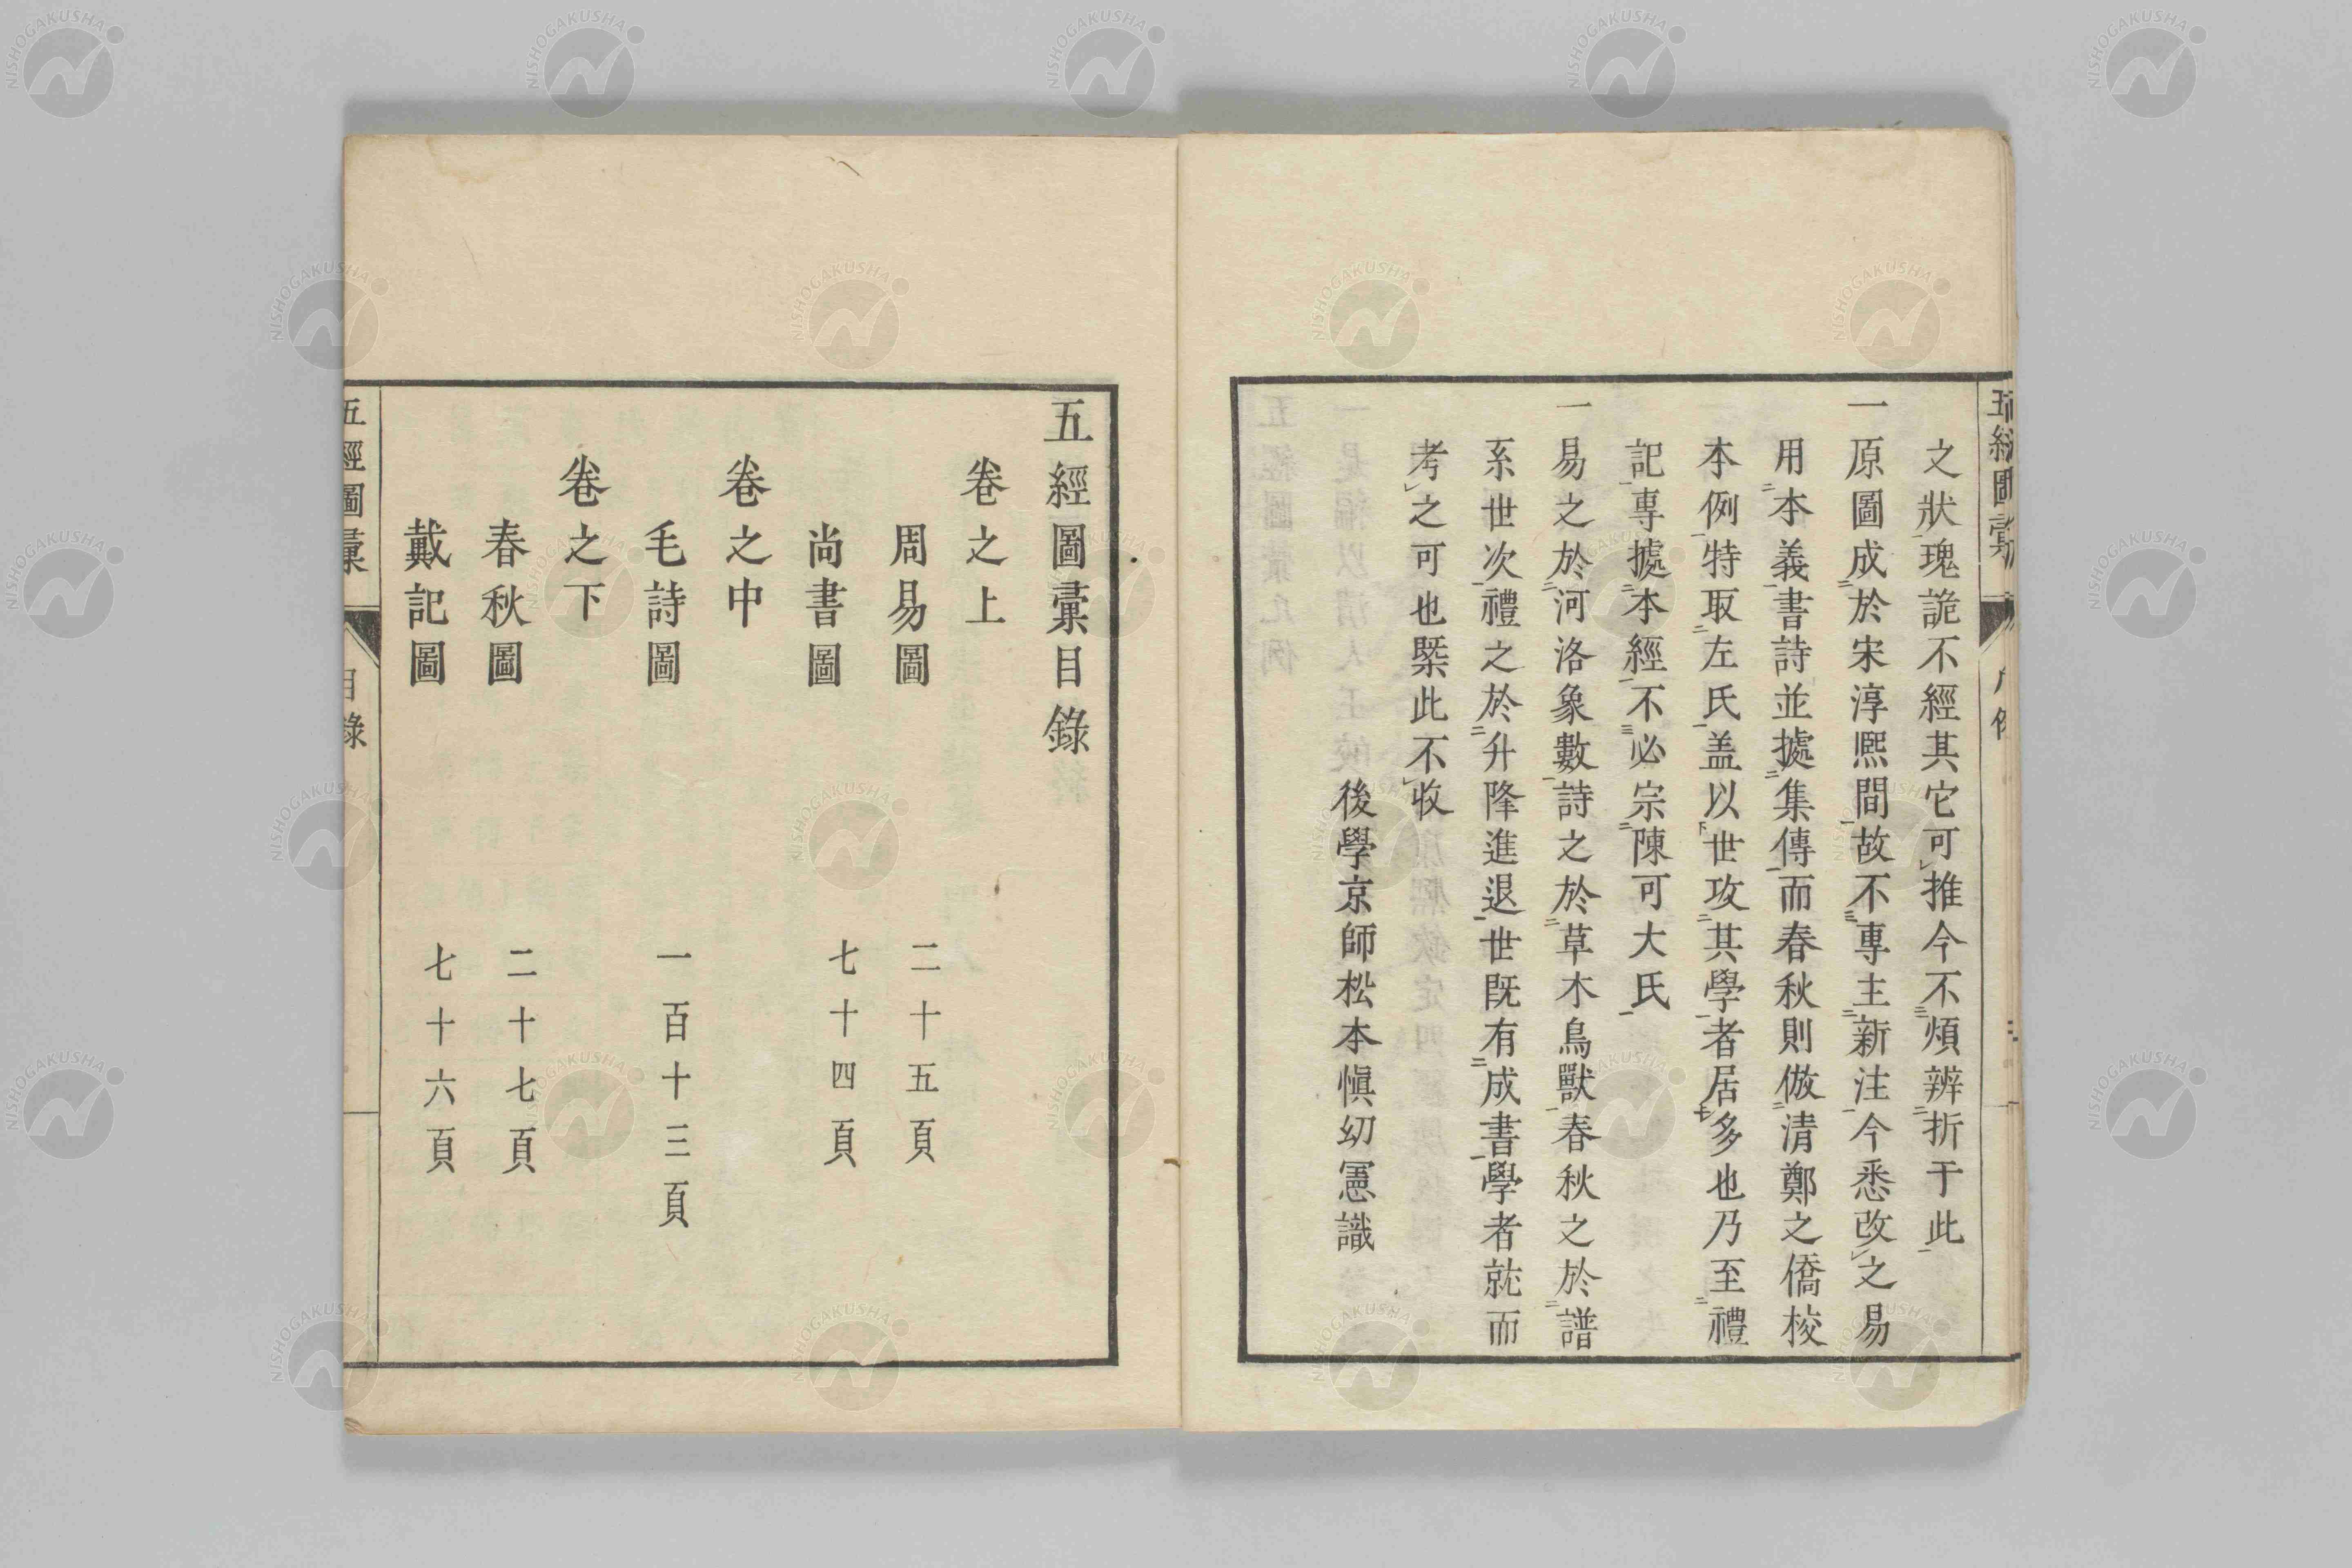 之狀瑰詭不經其它可推今不煩辨折于此
一原圖成於宋淳熈間故不專主新注今悉改之易
用本義書詩並據集傳而春秋則倣清鄭之僑校
本例特取左氏盖以世攻其學者居多也乃至禮
記專據本經不必宗陳可大氏
一易之於河洛象數詩之於草木鳥獸春秋之於譜
系世次禮之於升降進退世既有成書學者就而
考之可也槩此不收
後學京師松本愼幼憲識
五經圖彙目錄
卷之上
周易圖 二十五頁
尚書圖 七十四頁
卷之中
毛詩圖 一百十三頁
卷之下
春秋圖 二十七頁
戴記圖 七十六頁
五經圖彙 目錄
NISHOGAKUSHA